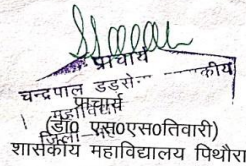 प्राचार्य
चन्द्रपाल डडसे
कीय
महाविद्या
प्राचार्य
(डॉ0 एस0एस0तिवारी)
जिला
शासकीय महाविद्यालय पिथौरा